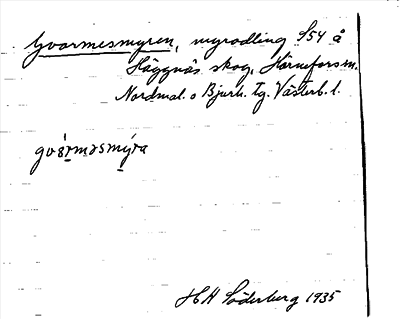 Gvarmesmyren, myrodling S54 å
Häggnäs skog, Hörnefors sn.
Nordmal. o Bjurh. Tg. Västerb. l.
gvárməsmýra
H H Söderberg 1935